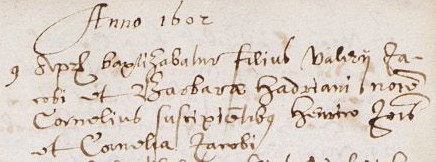 Anno 1602
9 Aprl baptizabatur filius Valerij Ja-
cobi et Barbaræ Hadriani noiē
Cornelius suscipiētibq Henrico Jois
et Cornelia Jacobi